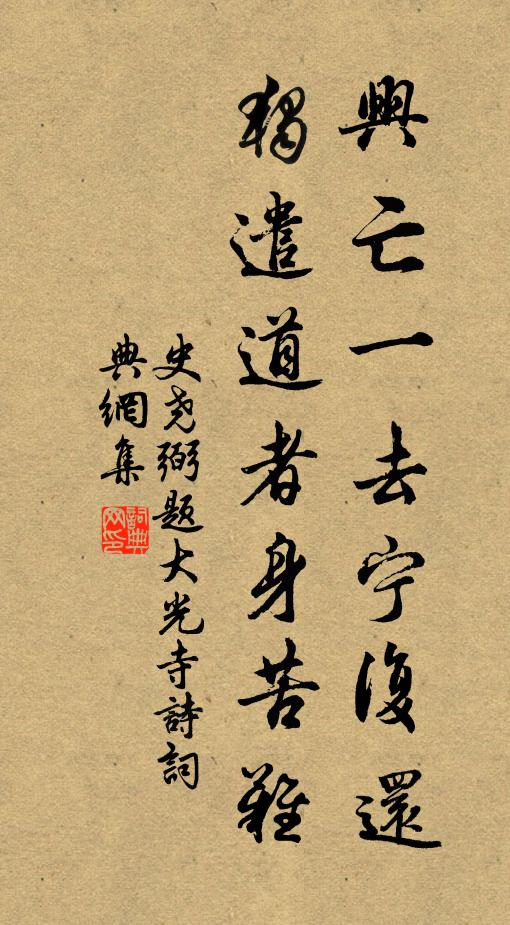 興亡一去宁復還
獨遣道者身苦難
史尧弼题大光寺詩詞
典網集
詞典
网印